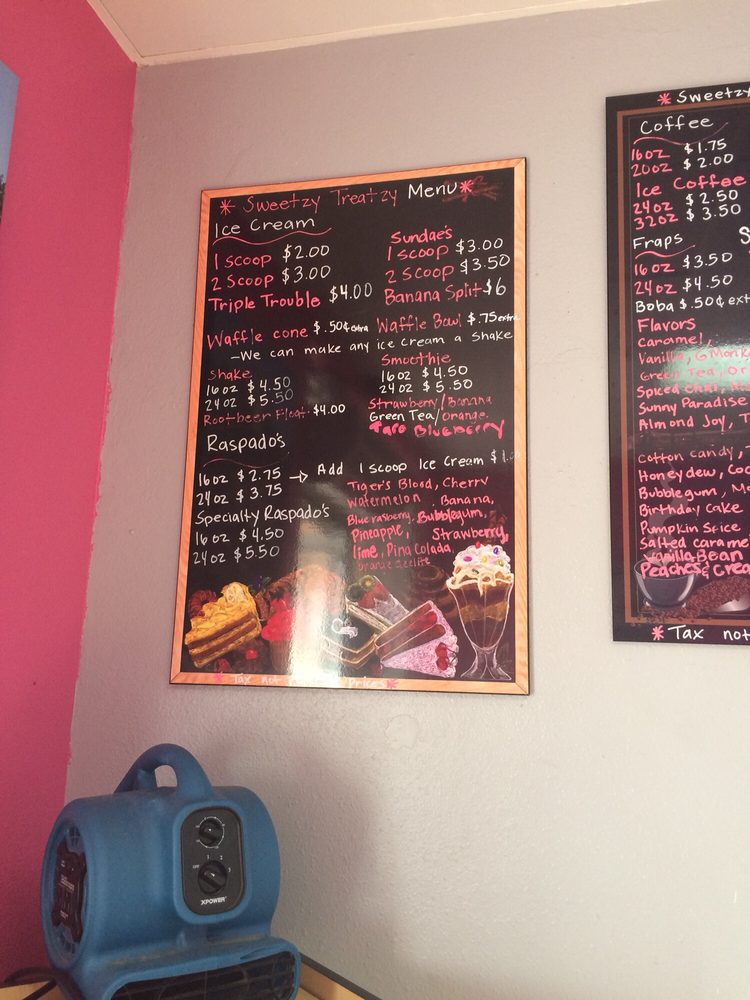 * Sweetzy Treatzy Menu *
Ice Cream
1 scoop $2.00
2 scoop $3.00
Triple Trouble $4.00
Sundae's
1 scoop $3.00
2 scoop $3.50
Banana Split $6
Waffle cone $.50¢ extra
Waffle Bowl $.75 extra
-We can make any ice cream a Shake
Shake
16oz $4.50
24oz $5.50
Rootbeer Float $4.00
Smoothie
16oz $4.50
24oz $5.50
Strawberry/Banana
Green Tea/Orange
Taro Blueberry
Raspado's
16oz $2.75 → Add 1 scoop Ice Cream
24oz $3.75
Tiger's Blood, Cherry
Watermelon, Banana,
Blue rasberry, Bubblegum,
Pineapple, Strawberry,
lime, Pina Colada
Specialty Raspado's
16oz $4.50
24oz $5.50
Tax not
* Sweetzy
Coffee
16oz $1.75
20oz $2.00
Ice Coffee
24oz $2.50
32oz $3.50
Fraps
16oz $3.50
24oz $4.50
Boba $.50¢ ext
Flavors
Caramel,
Vanilla,
Green Tea, Or
Spiced Chai,
Sunny Paradise
Almond Joy, T
Cotton Candy,
Honeydew, Coc
Bubblegum, Mo
Birthday Cake
Pumpkin Spice
Salted carame
Vanilla Bean
Peaches & Crea
* Tax not
XPOWER